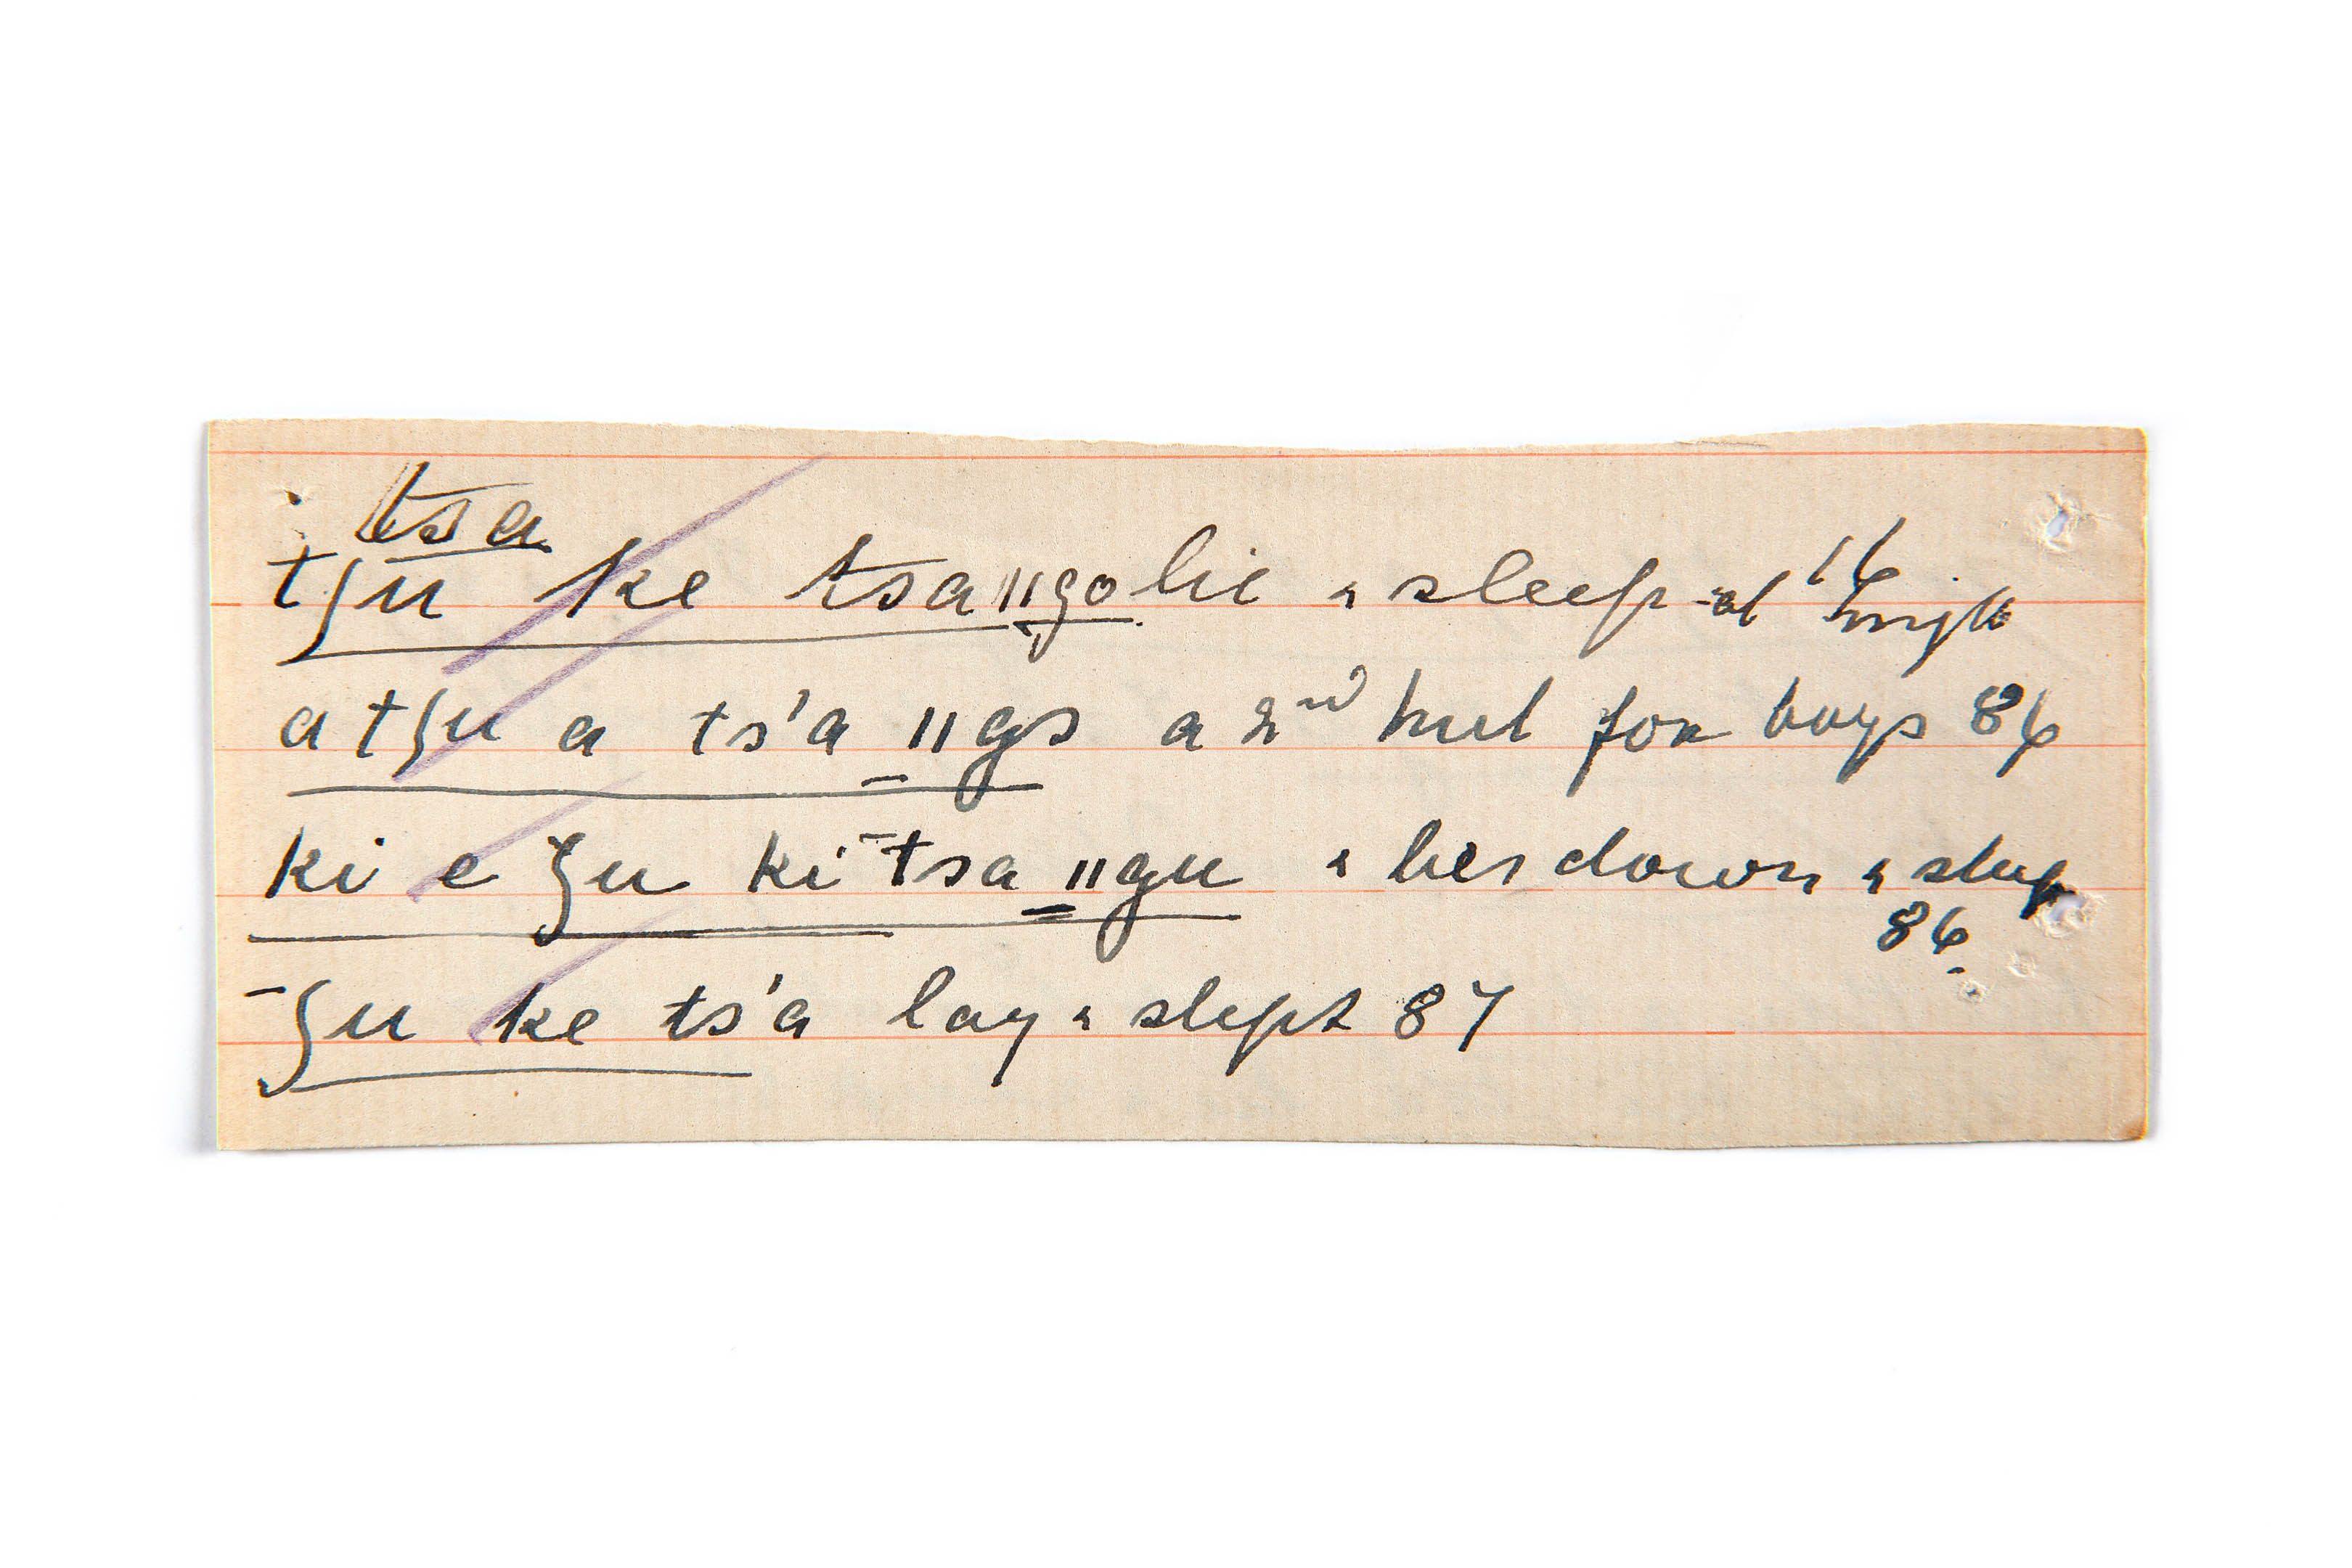 tsa
tʒu ke tsa ǁgo lie & sleep at 16 night
a tʒu a ts'a ǁgs a 2nd hut for boys 86
ki e ʒu ki tsa ǁgu & lies down & sleep
86.
ʒu ke ts'a lay & slept 87